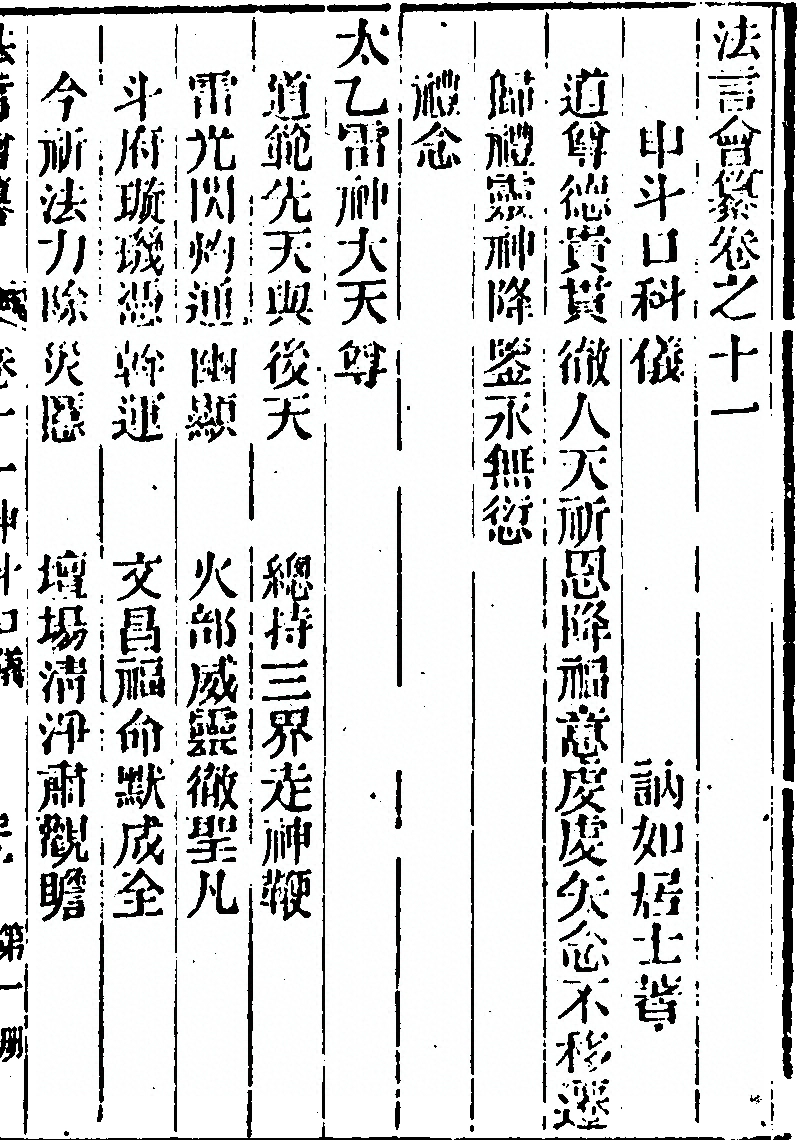 法言會纂卷之十一
申斗口科儀　訥如居士著
道尊德貴貫徹人天祈恩降福意虔虔矢念不移遷
歸禮靈神降鑒永無愆
禮念
太乙雷神大天尊
道範先天與後天　總持三界走神鞭
雷光閃灼通幽顯　火部威靈徹聖凡
斗府璇璣憑幹運　文昌福命默成全
今祈法力除災慝　壇場清淨肅觀瞻
法言會纂　卷十一申斗口儀　第一册